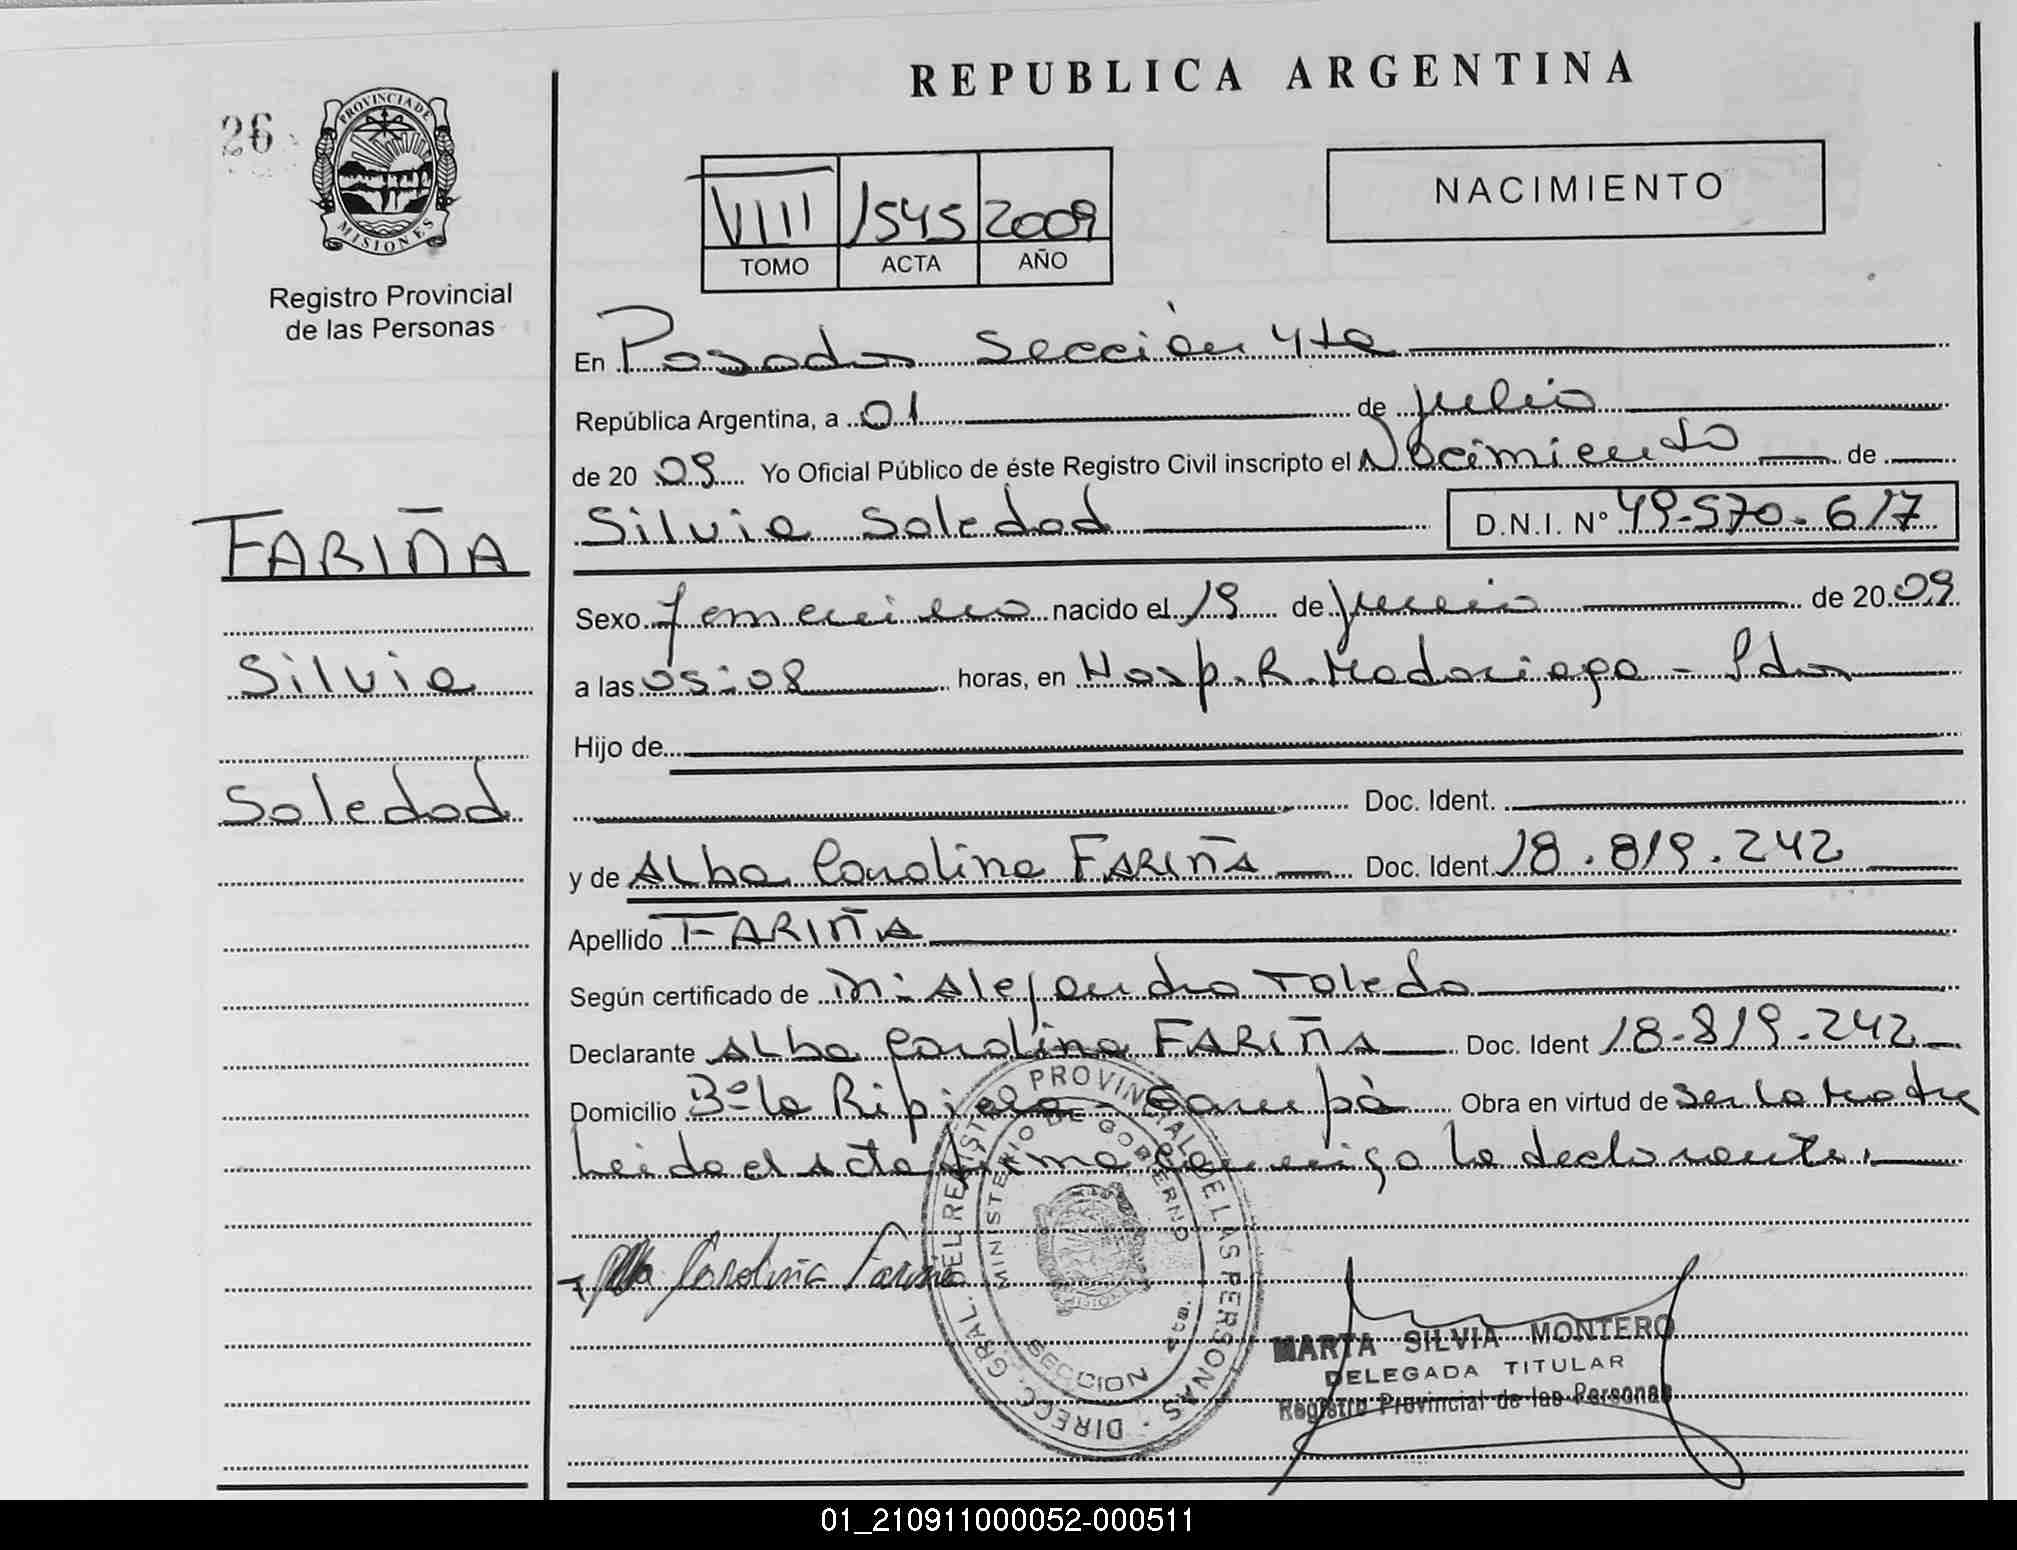 REPUBLICA ARGENTINA
26
PROVINCIA DE
MISIONES
Registro Provincial
de las Personas
VIII 1545 2009
TOMO ACTA AÑO
NACIMIENTO
En Posadas Sección 4ta
República Argentina, a 01 de julio
de 20 09 Yo Oficial Público de éste Registro Civil inscripto el Nacimiento de
Silvia Soledad D.N.I. N° 49.570.617
FARIÑA
Silvia
Soledad
Sexo femenino nacido el 19 de junio de 20 09
a las 05:08 horas, en Hosp. R. Madariaga - Pdas
Hijo de
Doc. Ident.
y de Alba Carolina FARIÑA Doc. Ident. 18.819.242
Apellido FARIÑA
Según certificado de M: Alejandra Toledo
Declarante Alba Carolina FARIÑA Doc. Ident 18.819.242
Domicilio Bº la Ripiera - Garupá Obra en virtud de ser la madre
Leida el Acta firma conmigo la declarante.
Alba Carolina Fariña
DIREC. GRAL. DEL REGISTRO PROVINCIAL DE LAS PERSONAS -
MINISTERIO DE GOBIERNO
SECCION 4ta.
MARTA SILVIA MONTERO
DELEGADA TITULAR
Registro Provincial de las Personas
01_210911000052-000511